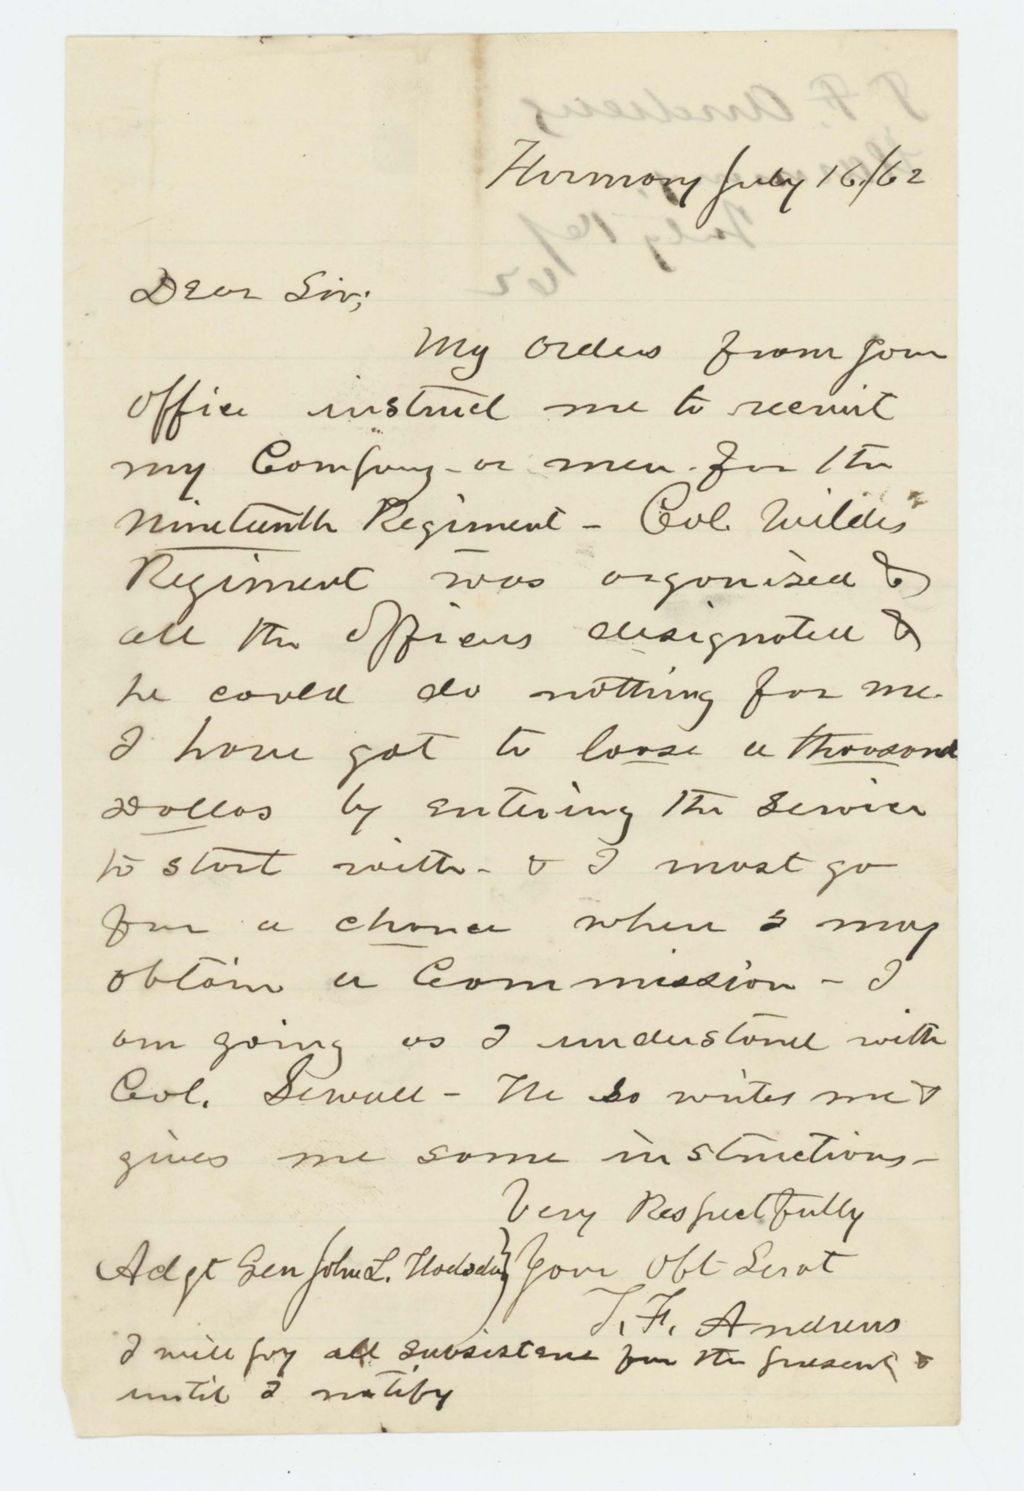 Harmony July 16,/62
Dear Sir;
My orders from your
office instruct me to recruit
my Company - or men - for the
Nineteenth Regiment - Col Wildes
Regiment was organised &
all the officers designated &
he could do nothing for me.
I have got to loose a thousand
Dollas by entering the service
to start with - & I must go
for a chance where I may
obtain a Commission - I
am going as I understand with
Col. Sewall - He so writes me &
gives me some instructions -
Very Respectfully
Adgt Gen John L. Hodsdon } Your Obt Servt
T. F. Andrews
I will pay all subsistence for the present &
until I notify